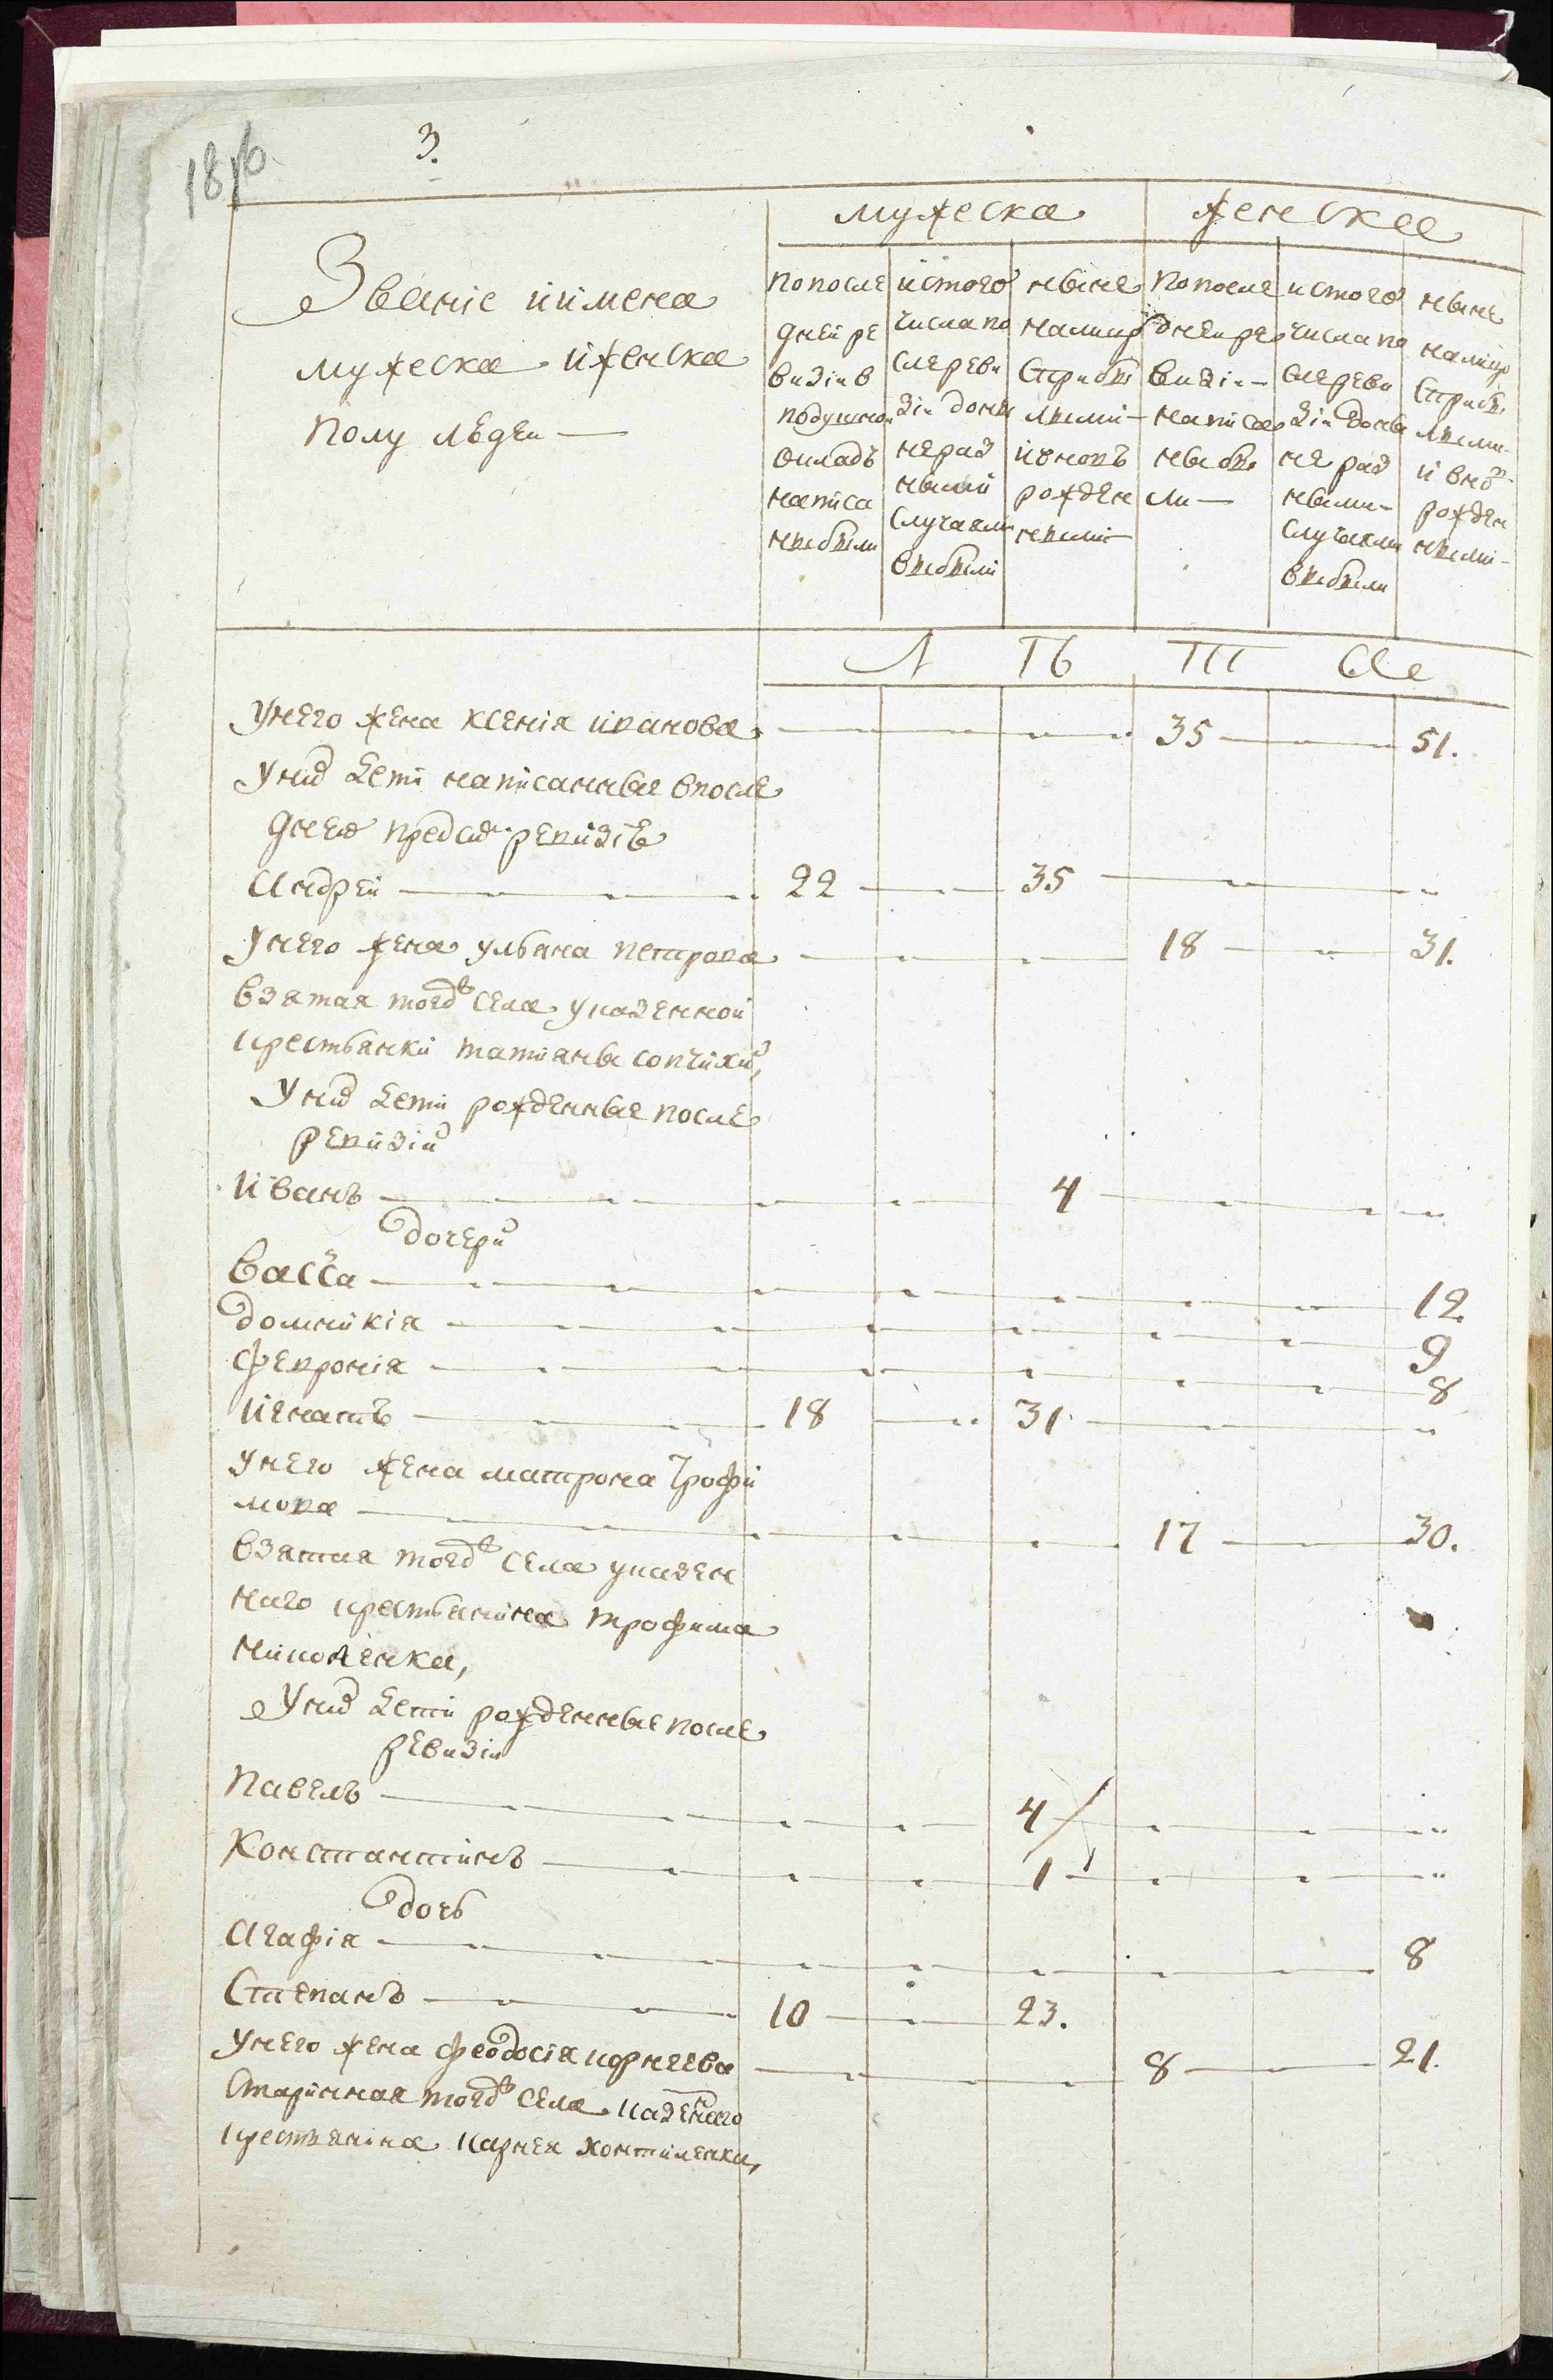 18об.
3.
мужеска женска
Званіе иимена
мужеска иженска
полу людеи
попосле
дней ре
визіи в
подушной
окладъ
написа
ны были
истого
числа по
слереви
зіи доны
не раз
ными
случаями
выбыли
ныне
налицо
Сприбы
лыми
ивновь
рожден
ными
попосле
днеи ре
визіи
написа
ны бы
ли
истого
числа по
слереви
зіи доны
не раз
ными
случаями
выбыли
ныне
налицо
Сприбы
лыми
и внов
рожден
ными
Л ТЬ ТП Ае
Унего жена ксенія иванова 35 51.
Уних дети написанные впосле
днею предсим ревизіею
Андрей 22 35
Унего жена ульяна петрова 18 31.
взятая тогож села указенной
крестьянки татияны сопчихи,
Уних дети рожденные после
ревизіи
Иванъ 4
дочери
васса 12.
домникія 9
февронія 8
Игнатъ 18 31
унего жена матрона Трофи
мова 17 30.
взятая тогож села указен
наго крестьянина трофима
николенка,
Уних дети рожденные после
ревизіи
Павелъ 4
Константинъ 1
дочь
Агафія 8
Степанъ 10 23.
унего жена феодосія корнеева 8 21.
Старинная тогож села казенаго
крестьянина карнея контиленка,